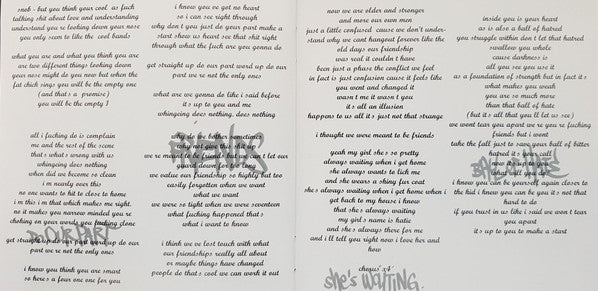 snob - but you think your cool as fuck
talking shit about love and understanding
understand you're looking down your nose
you only seem to like the cool bands
what you are and what you think you are
are two different things looking down
your nose might do you now but when the
fat chick sings you will be the empty one
(and that's a promise)
you will be the empty 1
all i fucking do is complain
me and the rest of the scene
that's what's wrong with us
whingeing does nothing
when did we become so clean
i m nearly over this
no one wants to hit to close to home
i m this i m that which makes me right.
no it makes you narrow minded you re
choking on your words you fucking clone
DO OUR PART
get straight up do our part word up do our
part we re not the only ones
i know you think you are smart
so here's a four one one for you
i know you ve got no heart
so i can see right through
why don t you just do your part make a
start show us heart see that shit right
through what the fuck are you gonna do
get straight up do our part word up do our
part we re not the only ones
what are we gonna do like i said before
it's up to you and me
whingeing does nothing. does nothing
sometimes
we re
friends
t let our
guard down for too
we value our friendship so highly but too
easily forgotten when we want
what we want
we were so tight when we were seventeen
what fucking happened that's
what i want to know
i think we ve lost touch with what
our friendships really all about
or maybe things have changed
people do that's cool we can work it out
now we are older and stronger
and more our own men
just a little confused cause we don't under-
stand why we cant hangout forever like the
old days our friendship
was real it couldn t have
been just a phase the conflict we feel
in fact is just confusion cause it feels like
you went and changed it
wasn t me it wasn t you
it's all an illusion
happens to us all it's just not that strange
i thought we were meant to be friends
yeah my girl she's so pretty
always waiting when i get home
she always wants to lick me
and she wears a shiny fur coat
she's always waiting when i get home when i
get back to my house i know
that she's always waiting
my girl's name is katie
and she's always there for me
and i ll tell you right now i love her and
how
chorus x4
SHE'S WAITING.
inside you is your heart
as is also a ball of hatred
you struggle within don t let that hatred
swallow you whole
cause darkness is
all you see you use it
as a foundation of strength but in fact it's
what makes you weak
you are so much more
than that ball of hate
(but it's all that you ll let us see)
we went tear you apart we re you re fucking
friends but i went
take the fall just to see your ball of bitter
hatred it's
now
up to you
what will you do
i know you can be yourself again closer to
the kid i knew you can be you it's not that
hard to do
if you trust in us like i said we won t tear
you apart
it's up to you to make a start